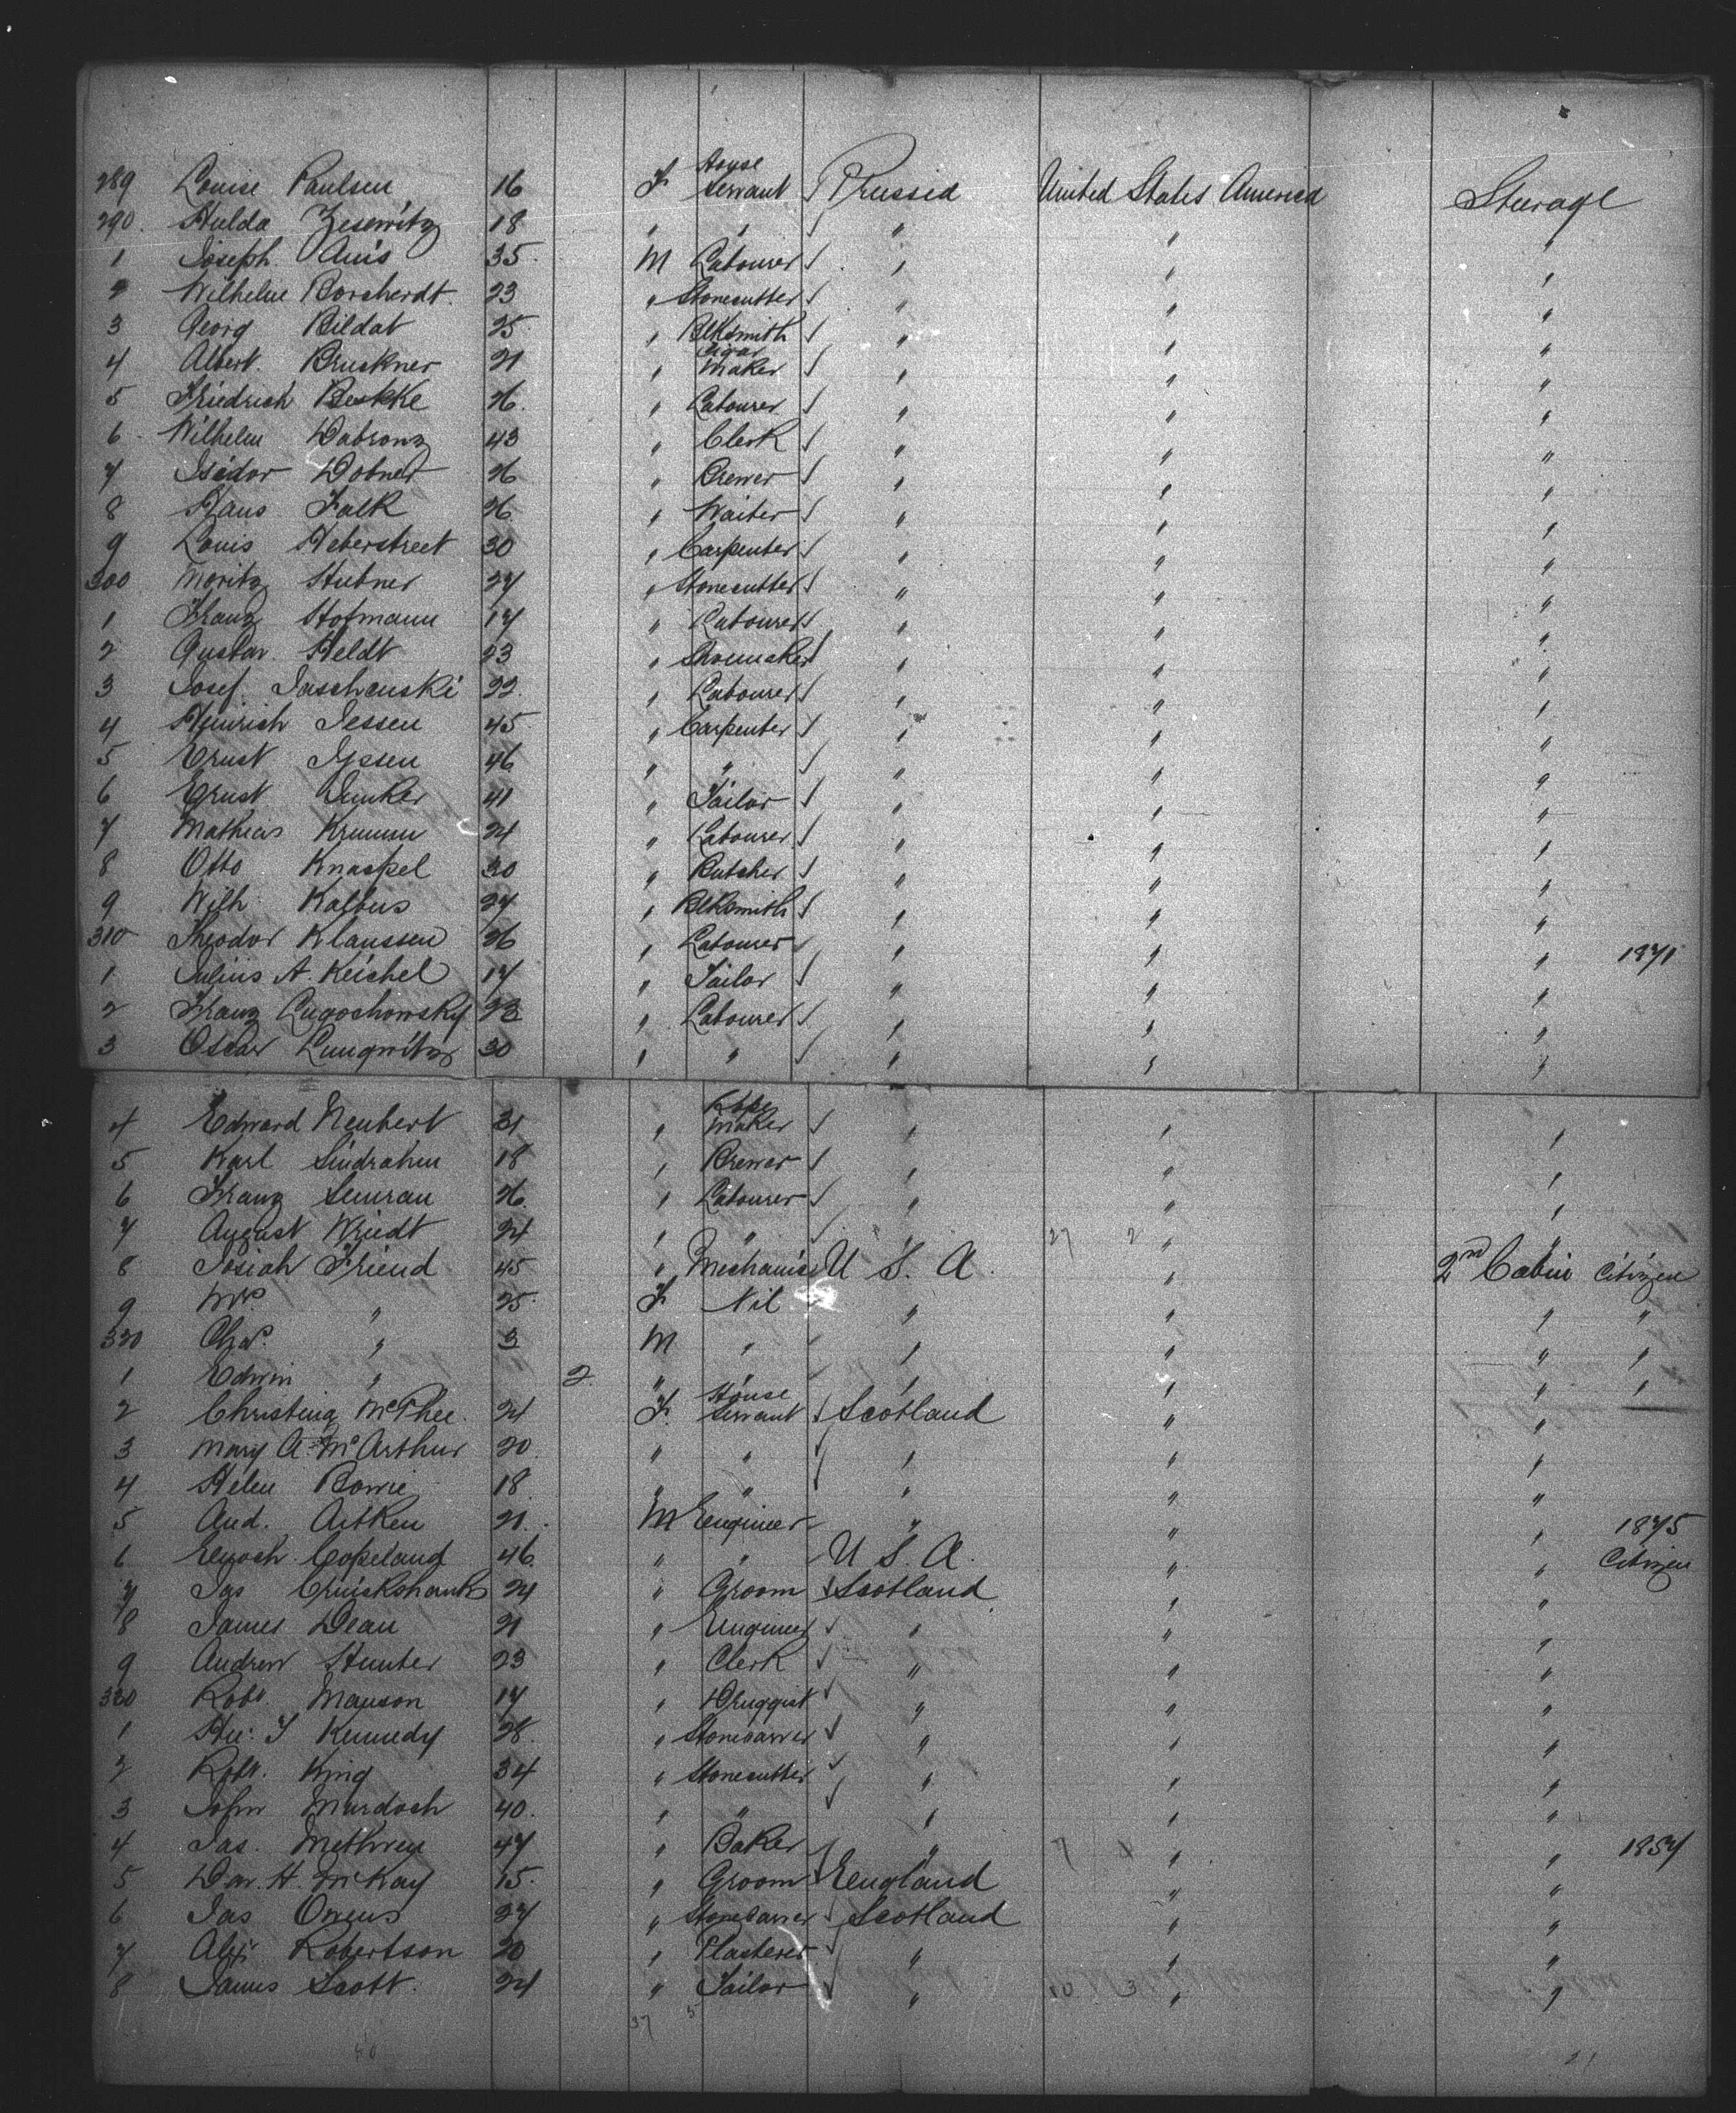 289 Louise Paulsen 16 F House Servant √ Prussia United States America Steerage
290. Hulda Zesewitz 18 " " √ " " "
1 Joseph Anis 35 M Labourer √ " " "
2 Wilhelm Borcherdt 23 " Stonecutter √ " " "
3 Georg Bildat 25 " Blksmith √ " " "
4 Albert Bruckner 21 " Cigar Maker √ " " "
5 Friedrich Beskke 26 " Labourer √ " " "
6 Wilhelm Dabronz 43 " Clerk √ " " "
7 Isidor Dobner 26 " Brewer √ " " "
8 Hans Falk 26 " Waiter √ " " "
9 Louis Heberstreet 30 " Carpenter √ " " "
300 Moritz Hubner 27 " Stonecutter √ " " "
1 Franz Hofmann 17 " Labourer √ " " "
2 Gustav Heldt 23 " Shoemaker √ " " "
3 Josef Jaschenski 22 " Labourer √ " " "
4 Heinrich Jessen 45 " Carpenter √ " " "
5 Ernst Ipsen 46 " " √ " " "
6 Ernst Junker 41 " Tailor √ " " "
7 Mathias Krumm 24 " Labourer √ " " "
8 Otto Knaspel 30 " Butcher √ " " "
9 Wilh. Kalbus 27 " Blksmith √ " " "
310 Theodor Klaussen 26 " Labourer √ " " " 1871
1 Julius A. Keichel 17 " Tailor √ " " "
2 Franz Lugochowsky 23 " Labourer √ " " "
3 Oscar Lungwitz 30 " " √ " " "
4 Edward Neubert 31 " Rope Maker √ " " "
5 Karl Sindrahm 18 " Brewer √ " " "
6 Franz Semrau 26 " Labourer √ " " "
7 August Wriedt 24 " " √ " 27 2 " "
8 Josiah Friend 45 " Mechanic U S. A. " 2nd Cabin Citizen
9 Mrs " 25 F Nil " " " "
320 Chas. " 3 M " " " " "
1 Edwin " 2 " " " " " "
2 Christina McPhee 24 F House Servant √ Scotland " "
3 Mary A. McArthur 20 " " √ " " "
4 Helen Bowie 18 " " √ " " "
5 And. Aitken 21 M Engineer " " " 1875
6 Enoch Copeland 46 " " U S. A. " " Citizen
7 Jas Cruickshank 24 " Groom √ Scotland " "
8 James Dean 21 " Engineer √ " " "
9 Andrew Hunter 23 " Clerk √ " " "
330 Robt. Manson 17 " Druggist √ " " "
1 He: J Kennedy 28 " Stonecarver √ " " "
2 Robt. King 34 " Stonecutter √ " " "
3 John Murdoch 40 " " √ " " "
4 Jas. Methven 47 " Baker √ " 7 4 " " 1857
5 Dav. H. McKay 15 " Groom √ England " "
6 Jas Owens 27 " Stonecarver √ Scotland " "
7 Alex Robertson 20 " Plasterer √ " " "
8 James Scott 24 " Tailor √ " 10 3 " "
37 5
40 21